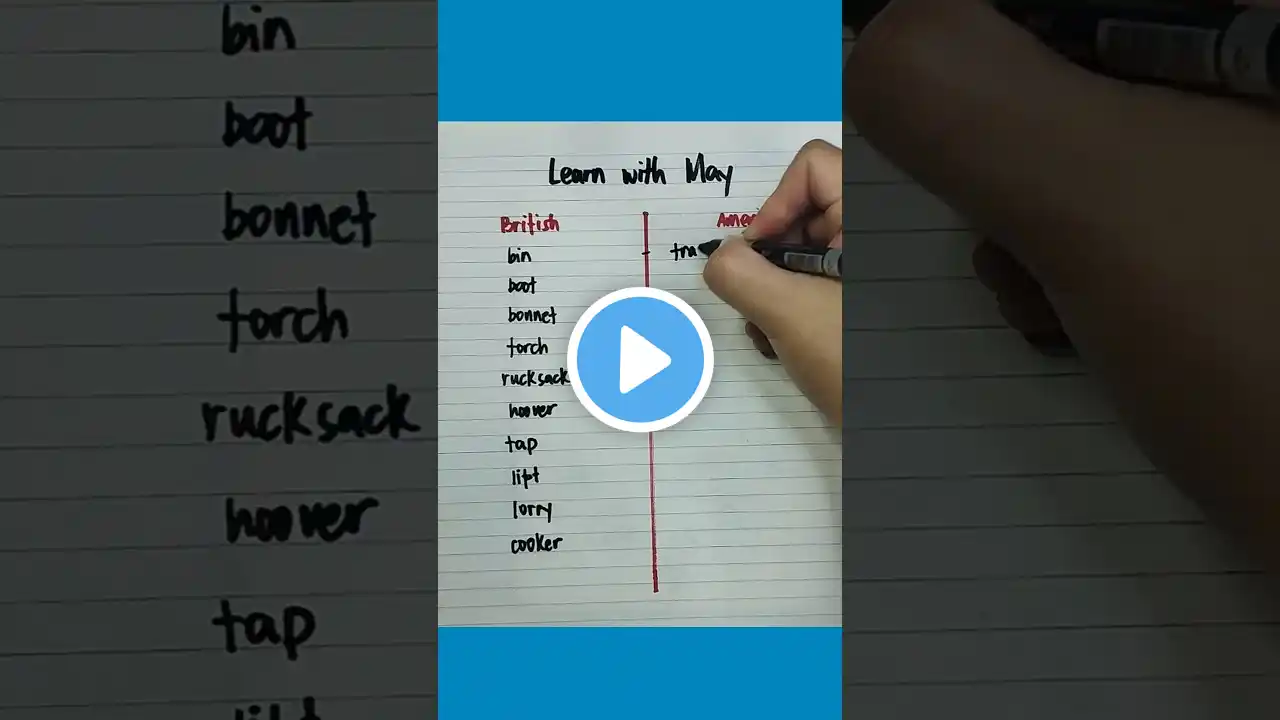 bin
boot
bonnet
torch
rucksack
hoover
tap
Learn with May
British
bin
boot
bonnet
torch
rucksack
hoover
tap
lift
lorry
cooker